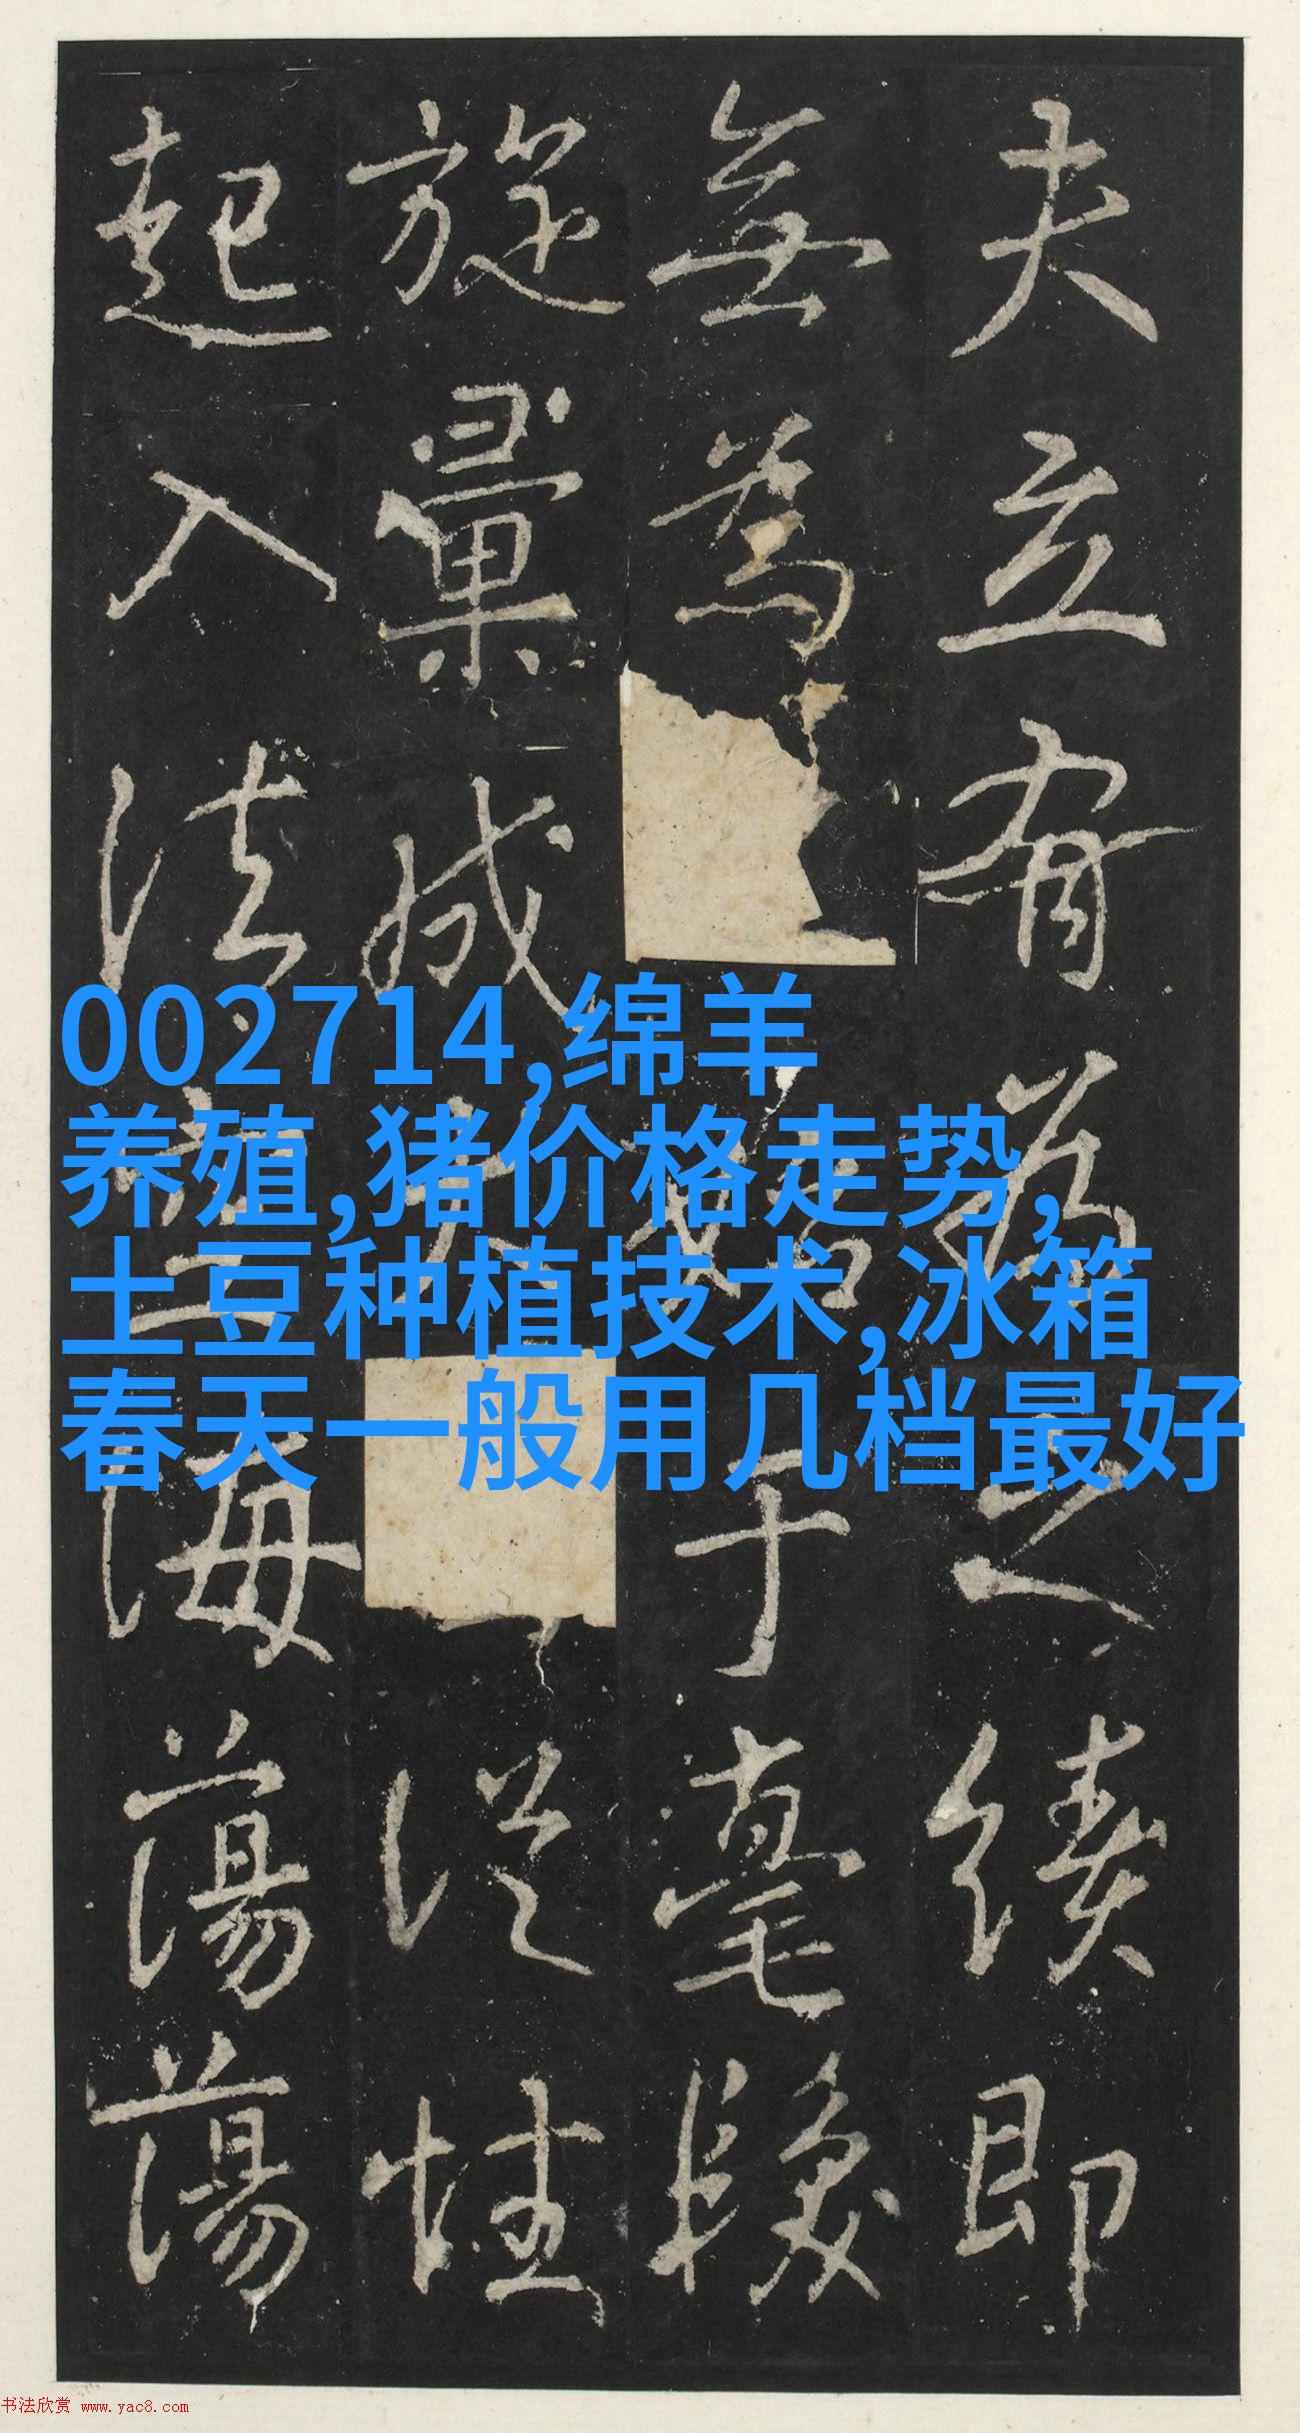 夫立有為之績即
無為于毫髮
旋彙成從性
起入法海蕩蕩
002714,绵羊
养殖,猪价格走势,
土豆种植技术,冰箱
春天一般用几档最好
书法欣赏 www.yac8.com